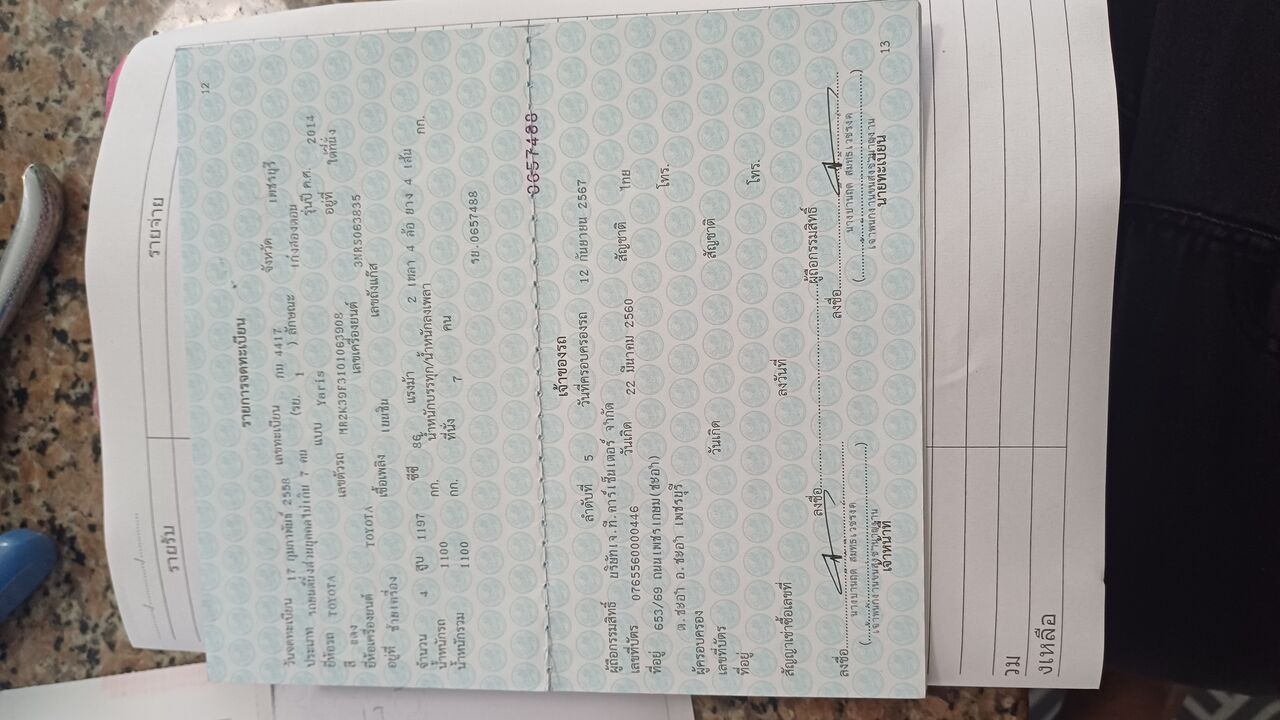 รายรับ
รายจ่าย
12
รายการจดทะเบียน
วันจดทะเบียน 17 กุมภาพันธ์ 2558 เลขทะเบียน กม 4417 จังหวัด เพชรบุรี
ประเภท รถยนต์นั่งส่วนบุคคลไม่เกิน 7 คน (รย. 1 ) ลักษณะ เก๋งสองตอน
ยี่ห้อรถ TOYOTA แบบ Yaris รุ่นปี ค.ศ. 2014
สี แดง เลขตัวรถ MR2K39F3101063908 อยู่ที่ ใต้ที่นั่ง
ยี่ห้อเครื่องยนต์ TOYOTA เลขเครื่องยนต์ 3NRS063835
อยู่ที่ ซ้ายเครื่อง เชื้อเพลิง เบนซิน เลขถังแก๊ส
จำนวน 4 สูบ 1197 ซีซี 86 แรงม้า 2 เพลา 4 ล้อ ยาง 4 เส้น
น้ำหนักรถ 1100 กก. น้ำหนักบรรทุก/น้ำหนักลงเพลา กก.
น้ำหนักรวม 1100 กก. ที่นั่ง 7 คน
รย.0657488
0657488
เจ้าของรถ
ลำดับที่ 5 วันที่ครอบครองรถ 12 กันยายน 2567
ผู้ถือกรรมสิทธิ์ บริษัทเจ.ที.คาร์เซ็นเตอร์ จำกัด
เลขที่บัตร 0765560000446 วันเกิด 22 มีนาคม 2560 สัญชาติ ไทย
ที่อยู่ 653/69 ถนนเพชรเกษม(ชะอำ) โทร.
ต.ชะอำ อ.ชะอำ เพชรบุรี
ผู้ครอบครอง
เลขที่บัตร วันเกิด สัญชาติ
ที่อยู่ โทร.
สัญญาเช่าซื้อเลขที่ ลงวันที่
ลงชื่อ ผู้ถือกรรมสิทธิ์
ลงชื่อ ลงชื่อ
เจ้าหน้าที่ นายทะเบียน
13
วม
งเหลือ